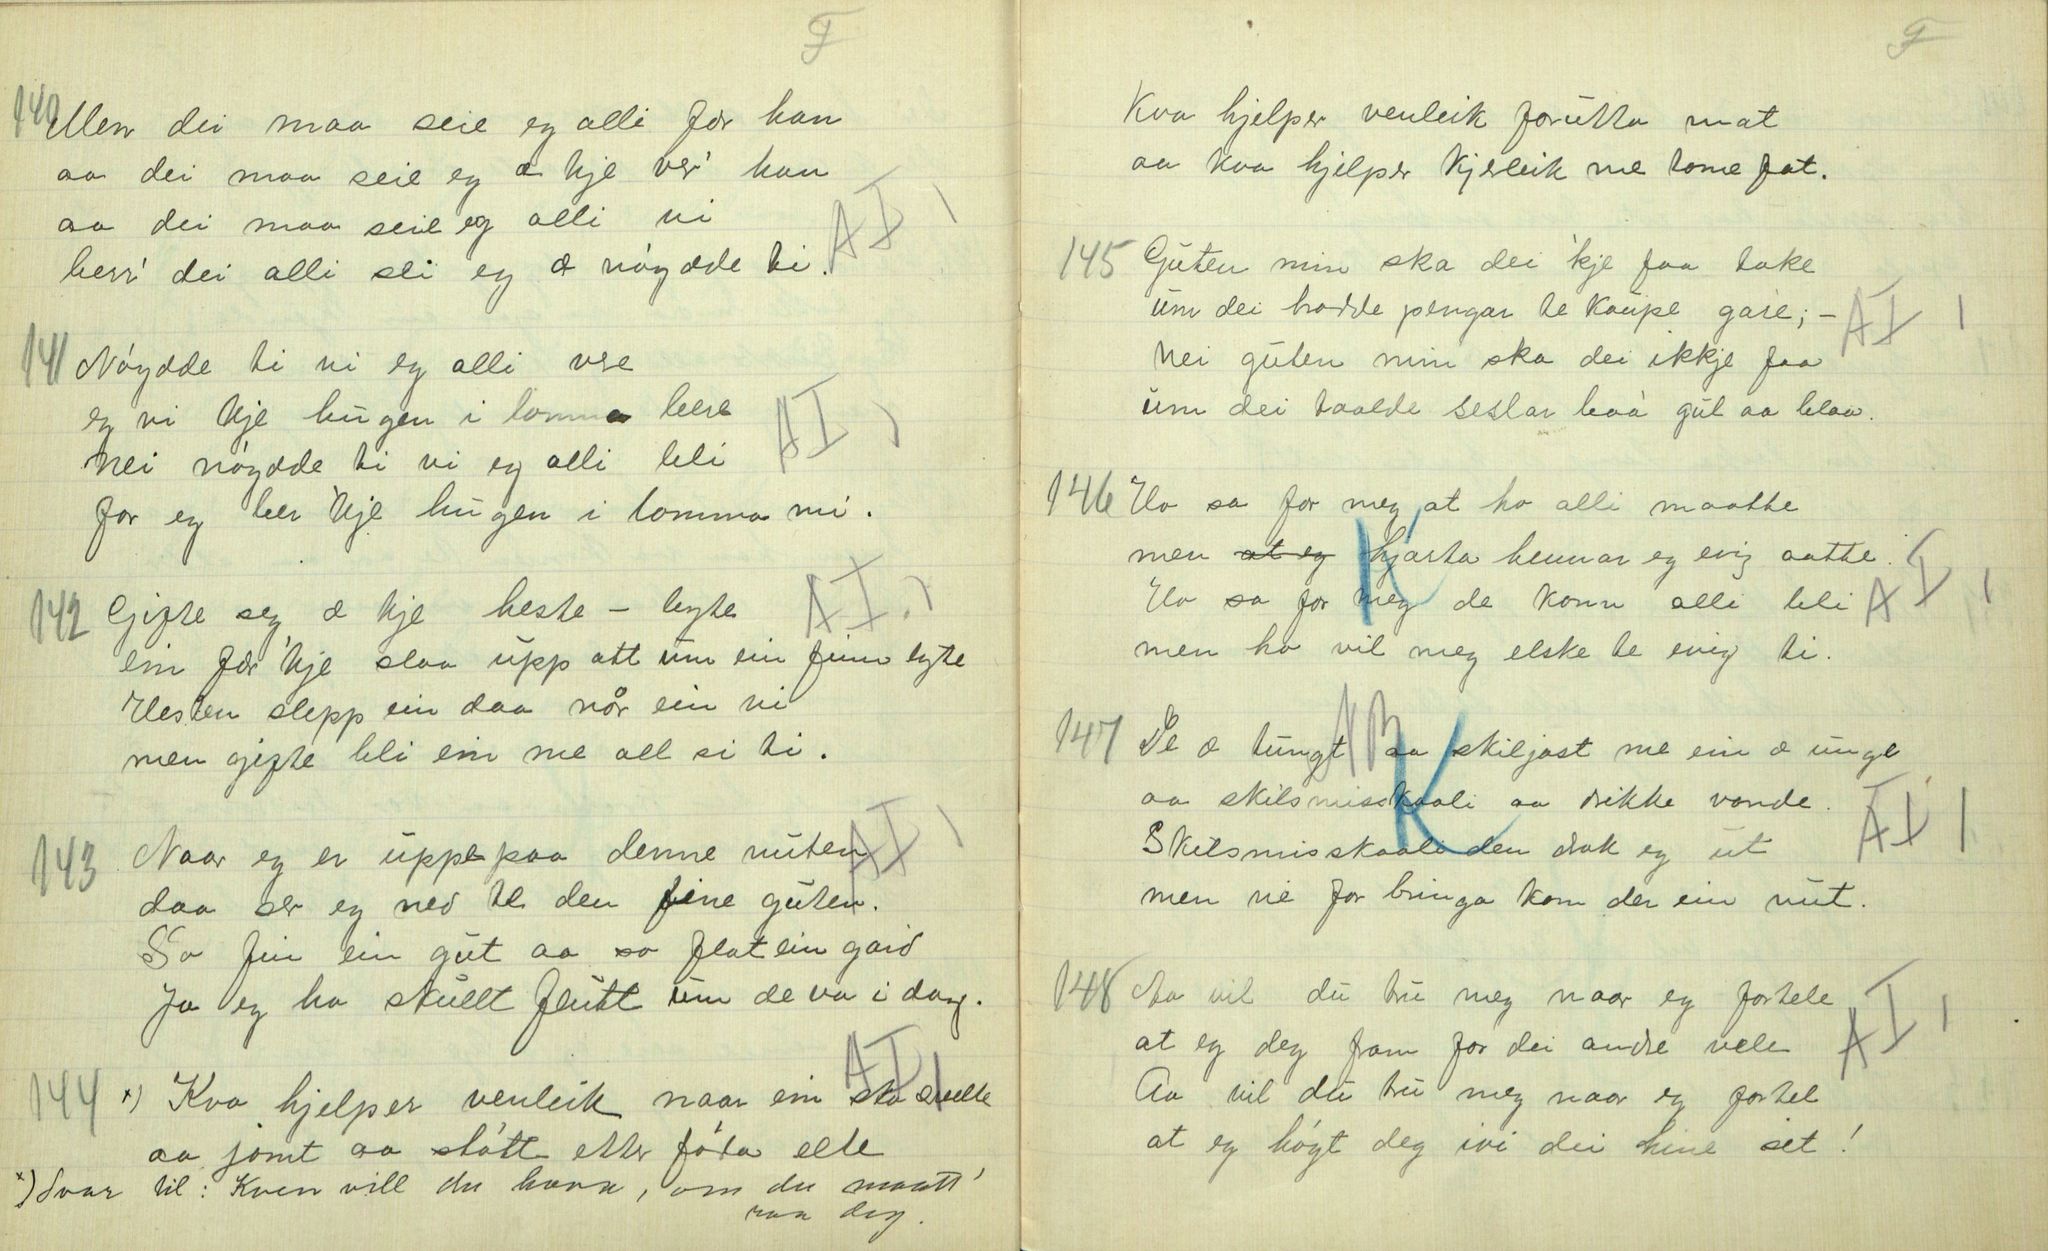 F
140 Men dei maa seie eg alli fær han
aa dei maa seie eg æ kje ver' han
aa dei maa seie eg alli vi
berr' dei alli sei eg æ nøydde ti.
AI 1
141 Nøydde ti vi eg alli vere
eg vi kje hugen i lomma bere
Nei nøydde ti vi eg alli bli
for eg ber 'kje hugen i lomma mi.
AI 1
142 Gifte seg æ kje heste-byte
ein fær 'kje slaa upp att um ein finn lyte
Hesten slepp ein daa når ein vi
men gifte bli ein me all si ti.
AI 1
143 Naar eg er uppe paa denne nuten
daa ser eg ned te den fine guten.
So fin ein gut aa so flat ein gard
Ja eg ha skullt flutt um de va i dag.
AI 1
144 x) Kva hjelper venleik naar ein ska svelte
aa jamt aa støtt etter føda elte
AI 1
x) Svar til: Kven vill du hava, om du maatt'
raa deg.
F
Kva hjelper venleik forutta mat
aa kva hjelper kjerleik me tome fat.
145 Guten min ska dei 'kje faa take
um dei hadde pengar te kaupe gare; -
Nei guten min ska dei ikkje faa
um dei taalde seslar baa' gul aa blaa.
AI 1
146 Ho sa for meg at ho alli maatte
men at eg hjarta hennar eg evig aatte.
Ho sa for meg de kann alli bli
men ho vil meg elske te evig ti.
K
AI 1
147 De æ tungt aa skiljast me ein æ unge
aa skilsmisskaali aa drikke vonde.
Skilsmisskaali den drak eg ut
men ne for bringa kom der ein nut.
NB
K
AI 1
148 Aa vil du tru meg naar eg fortele
at eg deg fram for dei andre vele
Aa vil du tru meg naar eg fortel
at eg høgt deg ivi dei hine set!
AI 1